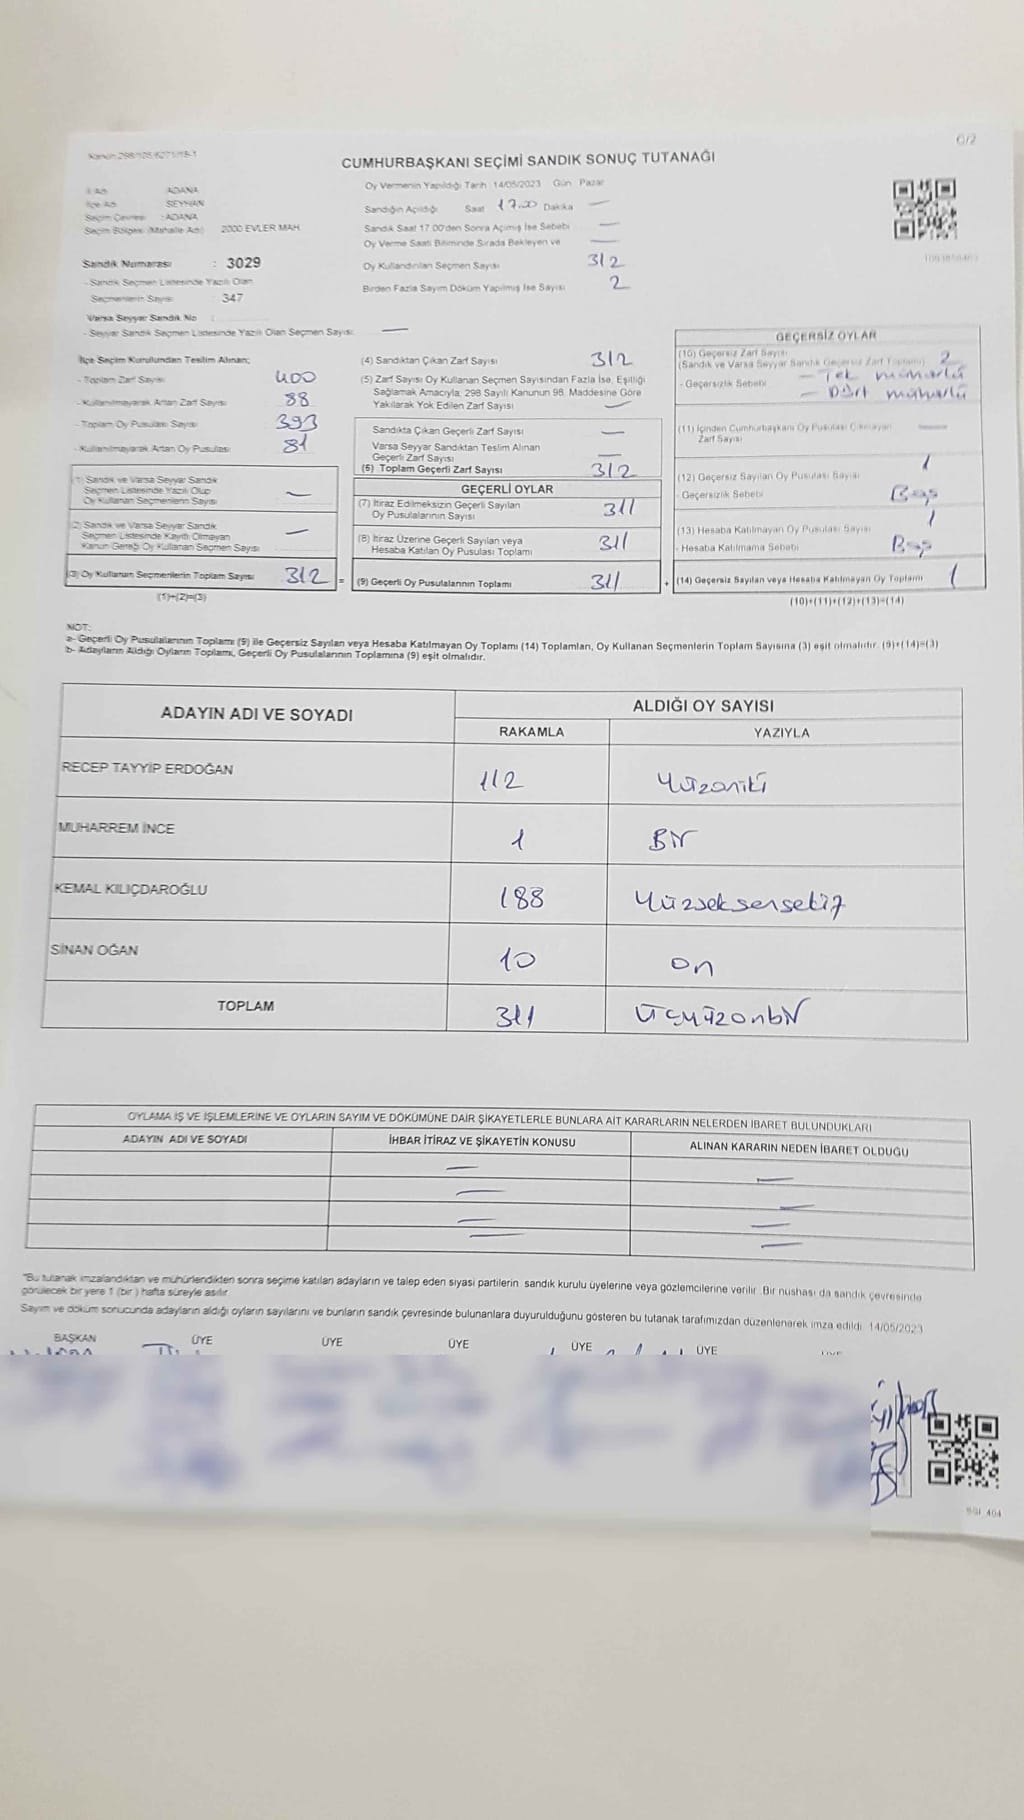 Kanun 298/105/6271/15-1
6/2
CUMHURBAŞKANI SEÇİMİ SANDIK SONUÇ TUTANAĞI
İl Adı ADANA
İlçe Adı SEYHAN
Seçim Çevresi : ADANA
Seçim Bölgesi (Mahalle Adı) 2000 EVLER MAH.
Sandık Numarası : 3029
- Sandık Seçmen Listesinde Yazılı Olan
Seçmenlerin Sayısı : 347
Varsa Seyyar Sandık No :
- Seyyar Sandık Seçmen Listesinde Yazılı Olan Seçmen Sayısı: —
Oy Vermenin Yapıldığı Tarih 14/05/2023 Gün Pazar
Sandığın Açıldığı Saat 17.00 Dakika —
Sandık Saat 17.00'den Sonra Açımış İse Sebebi —
Oy Verme Saati Bitiminde Sırada Bekleyen ve —
Oy Kullandırılan Seçmen Sayısı 312
Birden Fazla Sayım Döküm Yapılmış İse Sayısı 2
İlçe Seçim Kurulundan Teslim Alınan;
- Toplam Zarf Sayısı 400
- Kullanılmayarak Artan Zarf Sayısı 88
- Toplam Oy Pusulası Sayısı 393
- Kullanılmayarak Artan Oy Pusulası 81
(1) Sandık ve Varsa Seyyar Sandık
Seçmen Listesinde Yazılı Olup
Oy Kullanan Seçmenlerin Sayısı —
(2) Sandık ve Varsa Seyyar Sandık
Seçmen Listesinde Kayıtlı Olmayan
Kanun Gereği Oy Kullanan Seçmen Sayısı —
(3) Oy Kullanan Seçmenlerin Toplam Sayısı 312 =
(1)+(2)=(3)
(4) Sandıktan Çıkan Zarf Sayısı 312
(5) Zarf Sayısı Oy Kullanan Seçmen Sayısından Fazla İse, Eşitliği
Sağlamak Amacıyla; 298 Sayılı Kanunun 98. Maddesine Göre
Yakılarak Yok Edilen Zarf Sayısı —
Sandıkta Çıkan Geçerli Zarf Sayısı —
Varsa Seyyar Sandıktan Teslim Alınan
Geçerli Zarf Sayısı —
(6) Toplam Geçerli Zarf Sayısı 312
GEÇERLİ OYLAR
(7) İtiraz Edilmeksizin Geçerli Sayılan
Oy Pusulalarının Sayısı 311
(8) İtiraz Üzerine Geçerli Sayılan veya
Hesaba Katılan Oy Pusulası Toplamı 311
(9) Geçerli Oy Pusulalarının Toplamı 311 +
GEÇERSİZ OYLAR
(10) Geçersiz Zarf Sayısı
(Sandık ve Varsa Seyyar Sandık Geçersiz Zarf Toplamı) 2
- Geçersizlik Sebebi — Tek mühürlü
— Dört mühürlü
(11) İçinden Cumhurbaşkanı Oy Pusulası Çıkmayan
Zarf Sayısı —
(12) Geçersiz Sayılan Oy Pusulası Sayısı 1
- Geçersizlik Sebebi Boş
(13) Hesaba Katılmayan Oy Pusulası Sayısı 1
- Hesaba Katılmama Sebebi Boş
(14) Geçersiz Sayılan veya Hesaba Katılmayan Oy Toplamı 1
(10)+(11)+(12)+(13)=(14)
NOT:
a- Geçerli Oy Pusulalarının Toplamı (9) ile Geçersiz Sayılan veya Hesaba Katılmayan Oy Toplamı (14) Toplamları, Oy Kullanan Seçmenlerin Toplam Sayısına (3) eşit olmalıdır. (9)+(14)=(3)
b- Adayların Aldığı Oyların Toplamı, Geçerli Oy Pusulalarının Toplamına (9) eşit olmalıdır.
ADAYIN ADI VE SOYADI ALDIĞI OY SAYISI
RAKAMLA YAZIYLA
RECEP TAYYİP ERDOĞAN 112 Yüzoniki
MUHARREM İNCE 1 Bir
KEMAL KILIÇDAROĞLU 188 Yüzseksensekiz
SİNAN OĞAN 10 on
TOPLAM 311 Üçyüzonbir
OYLAMA İŞ VE İŞLEMLERİNE VE OYLARIN SAYIM VE DÖKÜMÜNE DAİR ŞİKAYETLERLE BUNLARA AİT KARARLARIN NELERDEN İBARET BULUNDUKLARI
ADAYIN ADI VE SOYADI İHBAR İTİRAZ VE ŞİKAYETİN KONUSU ALINAN KARARIN NEDEN İBARET OLDUĞU
— —
— —
— —
— —
"Bu tutanak imzalandıktan ve mühürlendikten sonra seçime katılan adayların ve talep eden siyasi partilerin sandık kurulu üyelerine veya gözlemcilerine verilir. Bir nüshası da sandık çevresinde
görülecek bir yere 1 (bir ) hafta süreyle asılır
Sayım ve döküm sonucunda adayların aldığı oyların sayılarını ve bunların sandık çevresinde bulunanlara duyurulduğunu gösteren bu tutanak tarafımızdan düzenlenerek imza edildi. 14/05/2023
BAŞKAN ÜYE ÜYE ÜYE ÜYE ÜYE